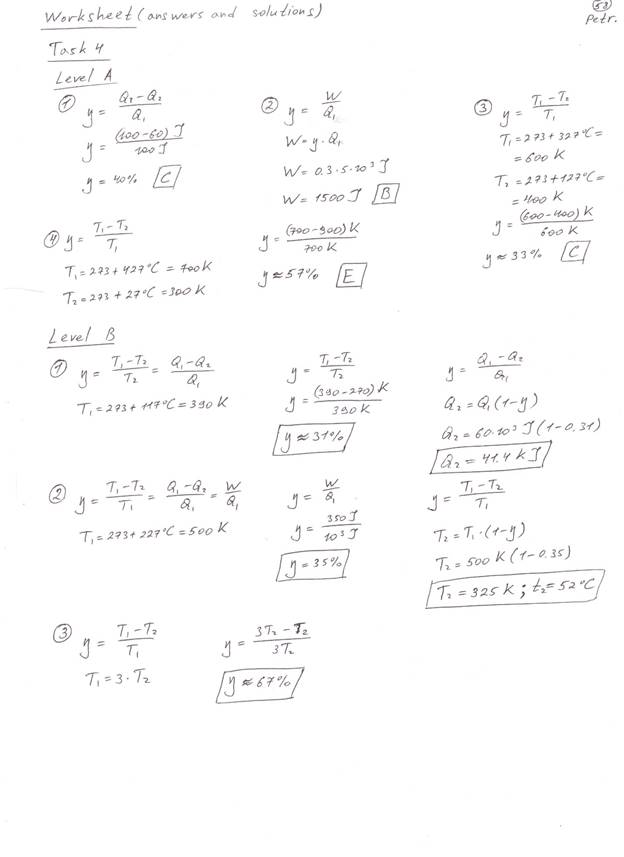 Worksheet (answers and solutions)
58
Petr.
Task 4
Level A
① y = (Q₂ - Q₂)/Q₁
y = ((100-60) J)/(100 J)
y = 40% C
② y = W/Q₁
W = y · Q₁
W = 0.3 · 5 · 10³ J
W = 1500 J B
③ y = (T₁ - T₂)/T₁
T₁ = 273 + 327°C =
= 600 K
T₂ = 273 + 127°C =
= 400 K
y = ((600-400) K)/(600 K)
y ≈ 33% C
④ y = (T₁ - T₂)/T₁
T₁ = 273 + 427°C = 700 K
T₂ = 273 + 27°C = 300 K
y = ((700-300) K)/(700 K)
y ≈ 57% E
Level B
① y = (T₁ - T₂)/T₂ = (Q₁ - Q₂)/Q₁
T₁ = 273 + 117°C = 390 K
y = (T₁ - T₂)/T₂
y = ((390-270) K)/(390 K)
y ≈ 31%
y = (Q₁ - Q₂)/Q₁
Q₂ = Q₁ (1-y)
Q₂ = 60 · 10³ J (1-0.31)
Q₂ = 41.4 kJ
② y = (T₁ - T₂)/T₁ = (Q₁ - Q₂)/Q₁ = W/Q₁
T₁ = 273 + 227°C = 500 K
y = W/Q₁
y = 350 J/10³ J
y = 35%
y = (T₁ - T₂)/T₁
T₂ = T₁ · (1-y)
T₂ = 500 K (1-0.35)
T₂ = 325 K ; t₂ = 52°C
③ y = (T₁ - T₂)/T₁
T₁ = 3 · T₂
y = (3T₂ - T₂)/3T₂
y ≈ 67%